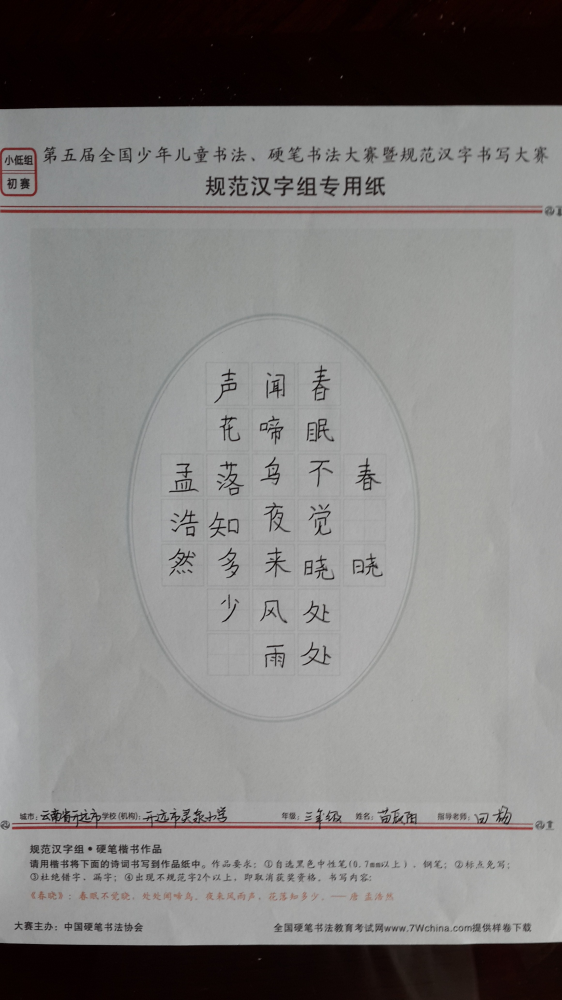 小低组
初赛
第五届全国少年儿童书法、硬笔书法大赛暨规范汉字书写大赛
规范汉字组专用纸
春晓
春眠不觉晓处处
闻啼鸟夜来风雨
声花落知多少
孟浩然
城市：云南省开远市 学校(机构)：开远市灵泉小学 年级：三年级 姓名：苗辰阳 指导老师：田杨
规范汉字组·硬笔楷书作品
请用楷书将下面的诗词书写到作品纸中。作品要求：①自选黑色中性笔(0.7mm以上)、钢笔；②标点免写；
③杜绝错字、漏字；④出现不规范字2个以上，即取消获奖资格。书写内容：
《春晓》：春眠不觉晓，处处闻啼鸟。夜来风雨声，花落知多少。——唐 孟浩然
大赛主办：中国硬笔书法协会 全国硬笔书法教育考试网www.7Wchina.com提供样卷下载